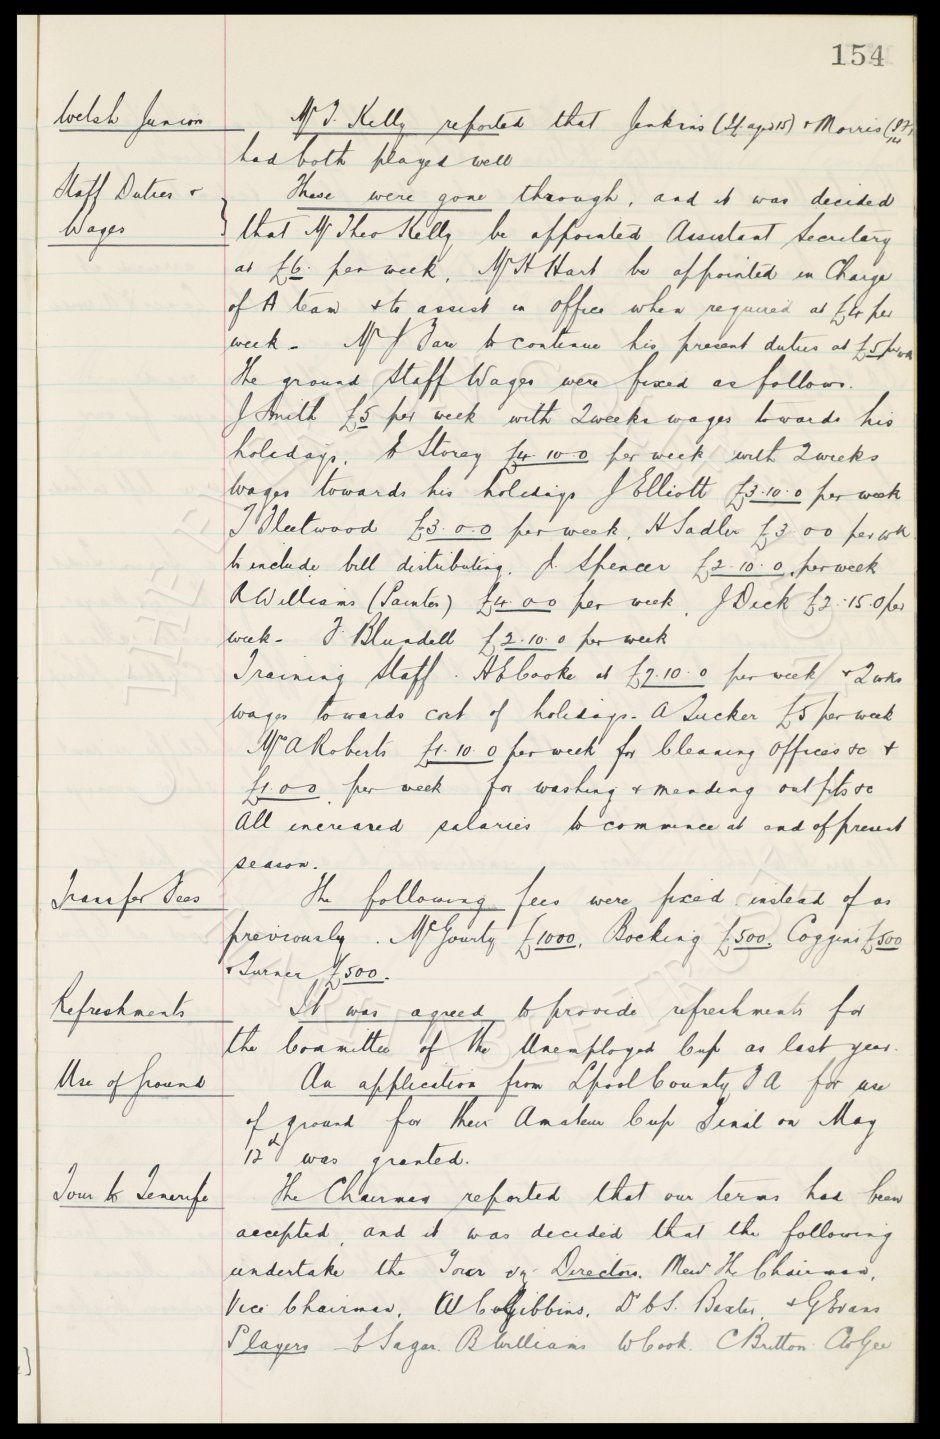 154
Welsh Junior Mr T. Kelly reported that Jenkins (I.f. aged 15) & Morris
had both played well
Staff Duties & These were gone through, and it was decided
Wages that Mr Theo Kelly be appointed Assistant Secretary
at £6. per week. Mr H Hart be appointed in Charge
of A team & to assist in office when required at £4 per
week - Mr J Fare to continue his present duties at £5 per wk
The ground Staff Wages were fixed as follows.
J Smith £5 per week with 2 weeks wages towards his
holidays. E Storey £4.10.0 per week with 2 weeks
wages towards his holidays J Elliott £3.10.0 per week
T Fleetwood £3.0.0 per week. H Sadler £3.0.0 per wk
to include bill distributing. J. Spencer £2.10.0. per week
R Williams (Painter) £4.0.0 per week. J Dick £2.15.0 per
week - F. Blundell £2.10.0 per week
Training Staff. H E Cooke at £7.10.0 per week & 2 wks
wages towards cost of holidays - A Tucker £5 per week
Mrs A Roberts £1.10.0 per week for Cleaning offices &c &
£1.0.0. per week for washing & mending outfits &c
All increased salaries to commence at end of present
season.
Transfer Fees The following fees were fixed instead of as
previously. McGourty £1000. Bocking £500. Coggins £500
& Turner £500.
Refreshments It was agreed to provide refreshments for
the Committee of the Unemployed Cup as last year.
Use of Ground An application from Lpool County F A for use
of ground for their Amateur Cup Final on May
12th was granted.
Tour to Tenerife The Chairman reported that our terms had been
accepted, and it was decided that the following
undertake the Tour viz Directors. Messrs The Chairman,
Vice Chairman, Gibbins. Dr C S. Baxter. & G Evans
Players E Sagar. B Williams W Cook. C Britton. C W Gee